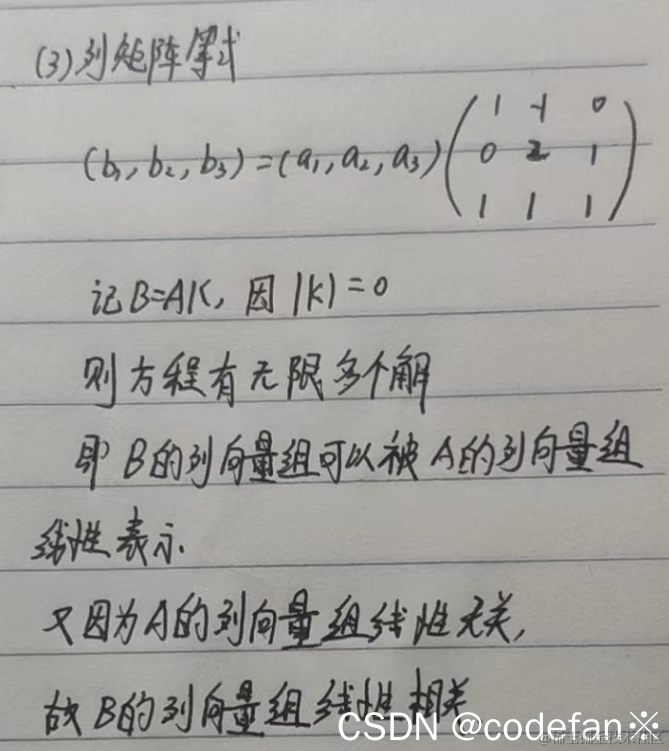 (3) 列矩阵等式
(b₁, b₂, b₃) = (a₁, a₂, a₃) ( 1 -1 0
0 2 1
1 1 1 )
记 B=AK, 因 |K| = 0
则方程有无限多个解
即 B的列向量组可以被 A的列向量组
线性表示.
又因为A的列向量组线性无关,
故 B的列向量组线性相关
CSDN @codefan※